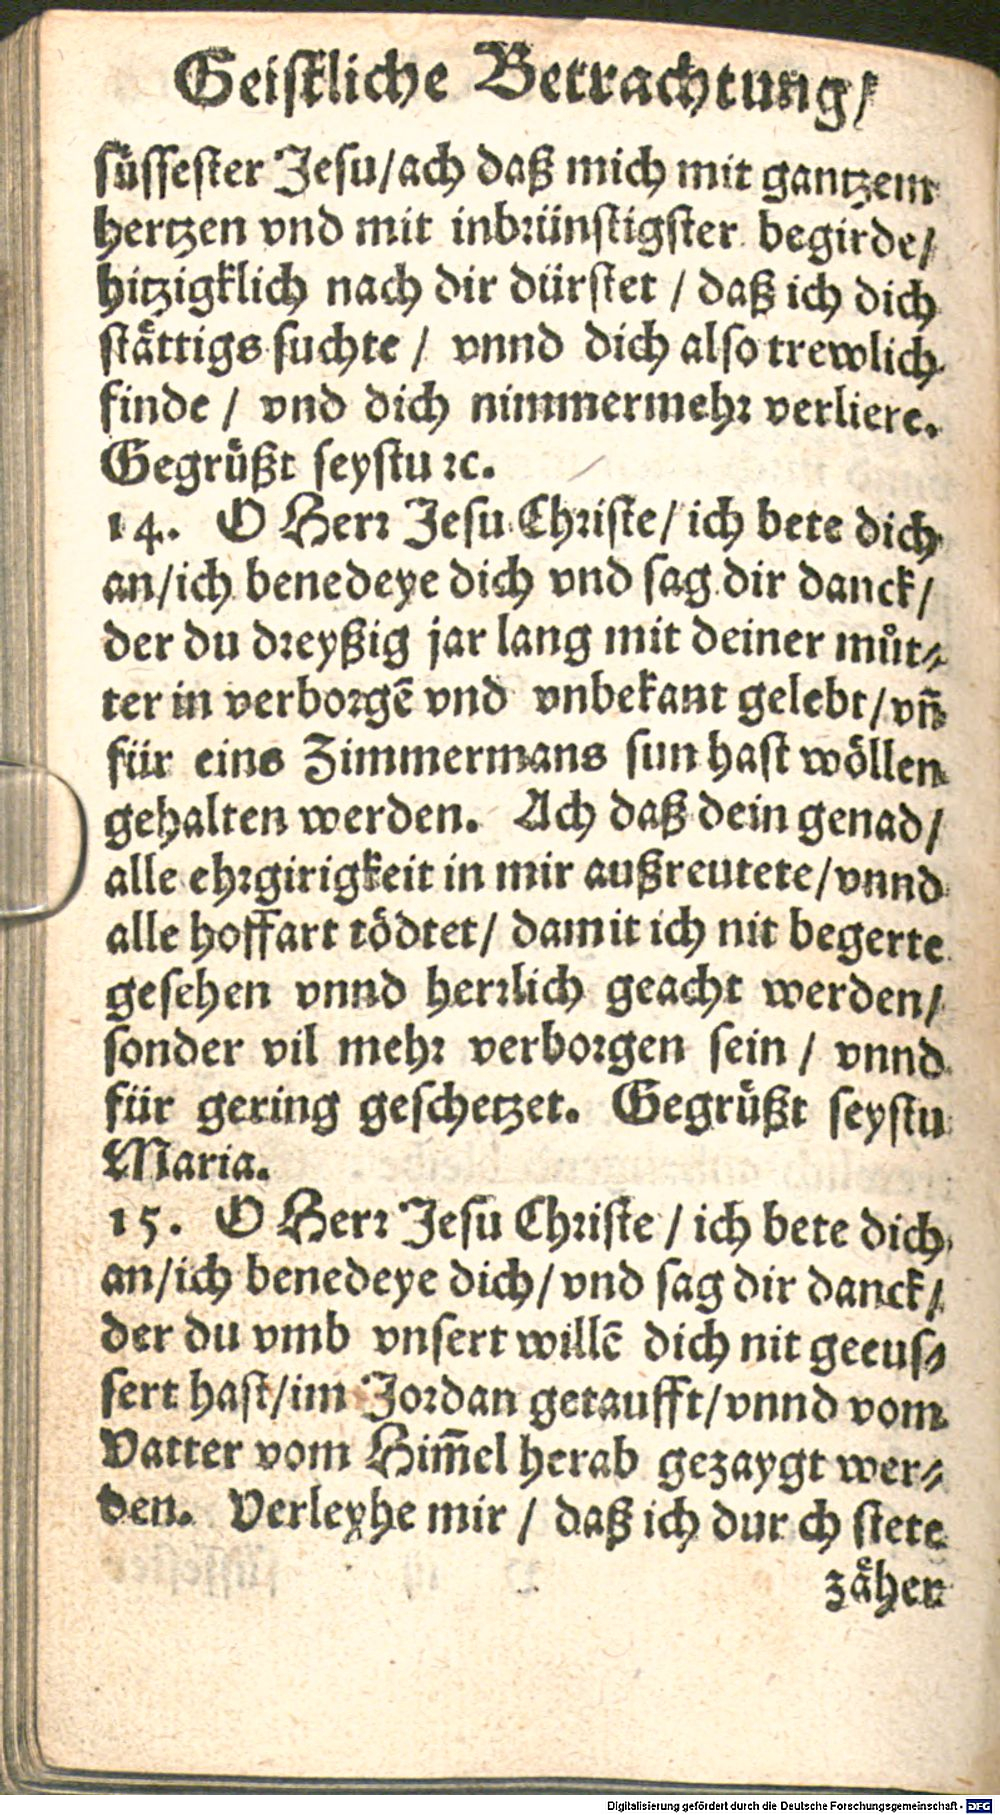 Geistliche Betrachtung/
süssester Jesu/ach daß mich mit gantzem
hertzen vnd mit inbrünstigster begirde/
hitzigklich nach dir dürstet / daß ich dich
stättigs suchte / vnnd dich also trewlich
finde / vnd dich nimmermehr verliere.
Gegrüßt seystu ꝛc.
14. O Herr Jesu Christe/ ich bete dich
an/ich benedeye dich vnd sag dir danck/
der du dreyßig jar lang mit deiner můt⸗
ter in verborgē vnd vnbekant gelebt/vn̄
für eins Zimmermans sun hast wöllen
gehalten werden. Ach daß dein genad/
alle ehrgirigkeit in mir außreutete/vnnd
alle hoffart tödtet/ damit ich nit begerte
gesehen vnnd herrlich geacht werden/
sonder vil mehr verborgen sein / vnnd
für gering geschetzet. Gegrüßt seystu
Maria.
15. O Herr Jesu Christe / ich bete dich
an/ich benedeye dich/vnd sag dir danck/
der du vmb vnsert willē dich nit geeus⸗
sert hast/im Jordan getaufft/vnnd vom
Vatter vom Him̄el herab gezaygt wer⸗
den. Verleyhe mir / daß ich dur ch stete
zäher
Digitalisierung gefördert durch die Deutsche Forschungsgemeinschaft - DFG